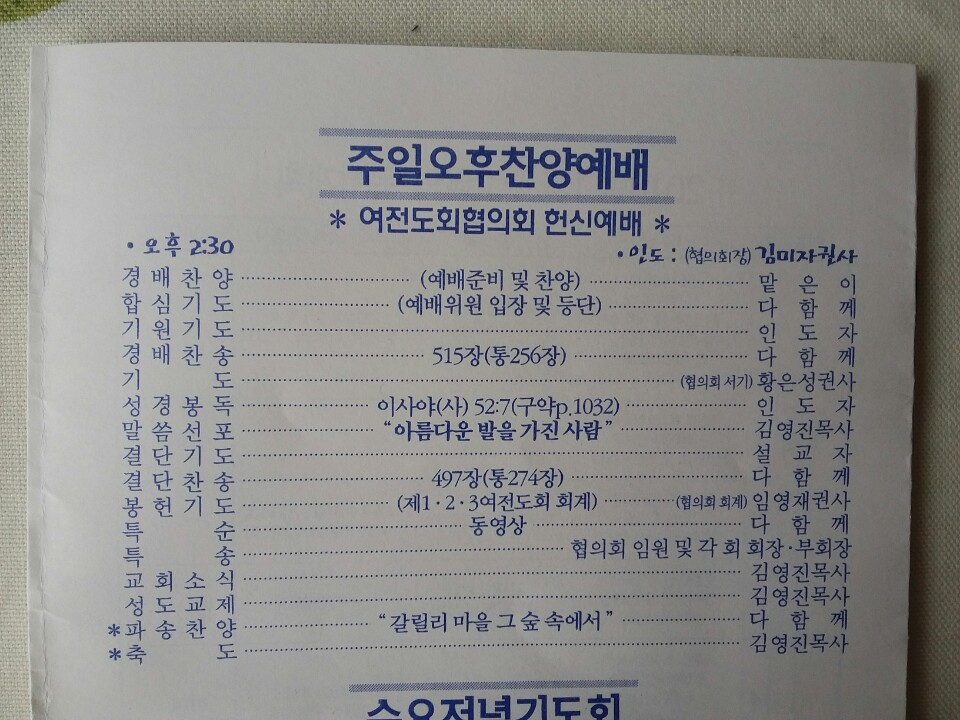 주일오후찬양예배
* 여전도회협의회 헌신예배 *
• 오후 2:30 • 인도 : (협의회장) 김미자권사
경배찬양 (예배준비 및 찬양) 맡은이
합심기도 (예배위원 입장 및 등단) 다함께
기원기도 인도자
경배찬송 515장(통256장) 다함께
기도 (협의회 서기) 황은성권사
성경봉독 이사야(사) 52:7(구약p.1032) 인도자
말씀선포 “아름다운 발을 가진 사람” 김영진목사
결단기도 설교자
결단찬송 497장(통274장) 다함께
봉헌기도 (제1·2·3여전도회 회계) (협의회 회계) 임영재권사
특순 동영상 다함께
특송 협의회 임원 및 각 회 회장·부회장
교회소식 김영진목사
성도교제 김영진목사
*파송찬양 “갈릴리 마을 그 숲 속에서” 다함께
*축도 김영진목사
수요저녁기도회